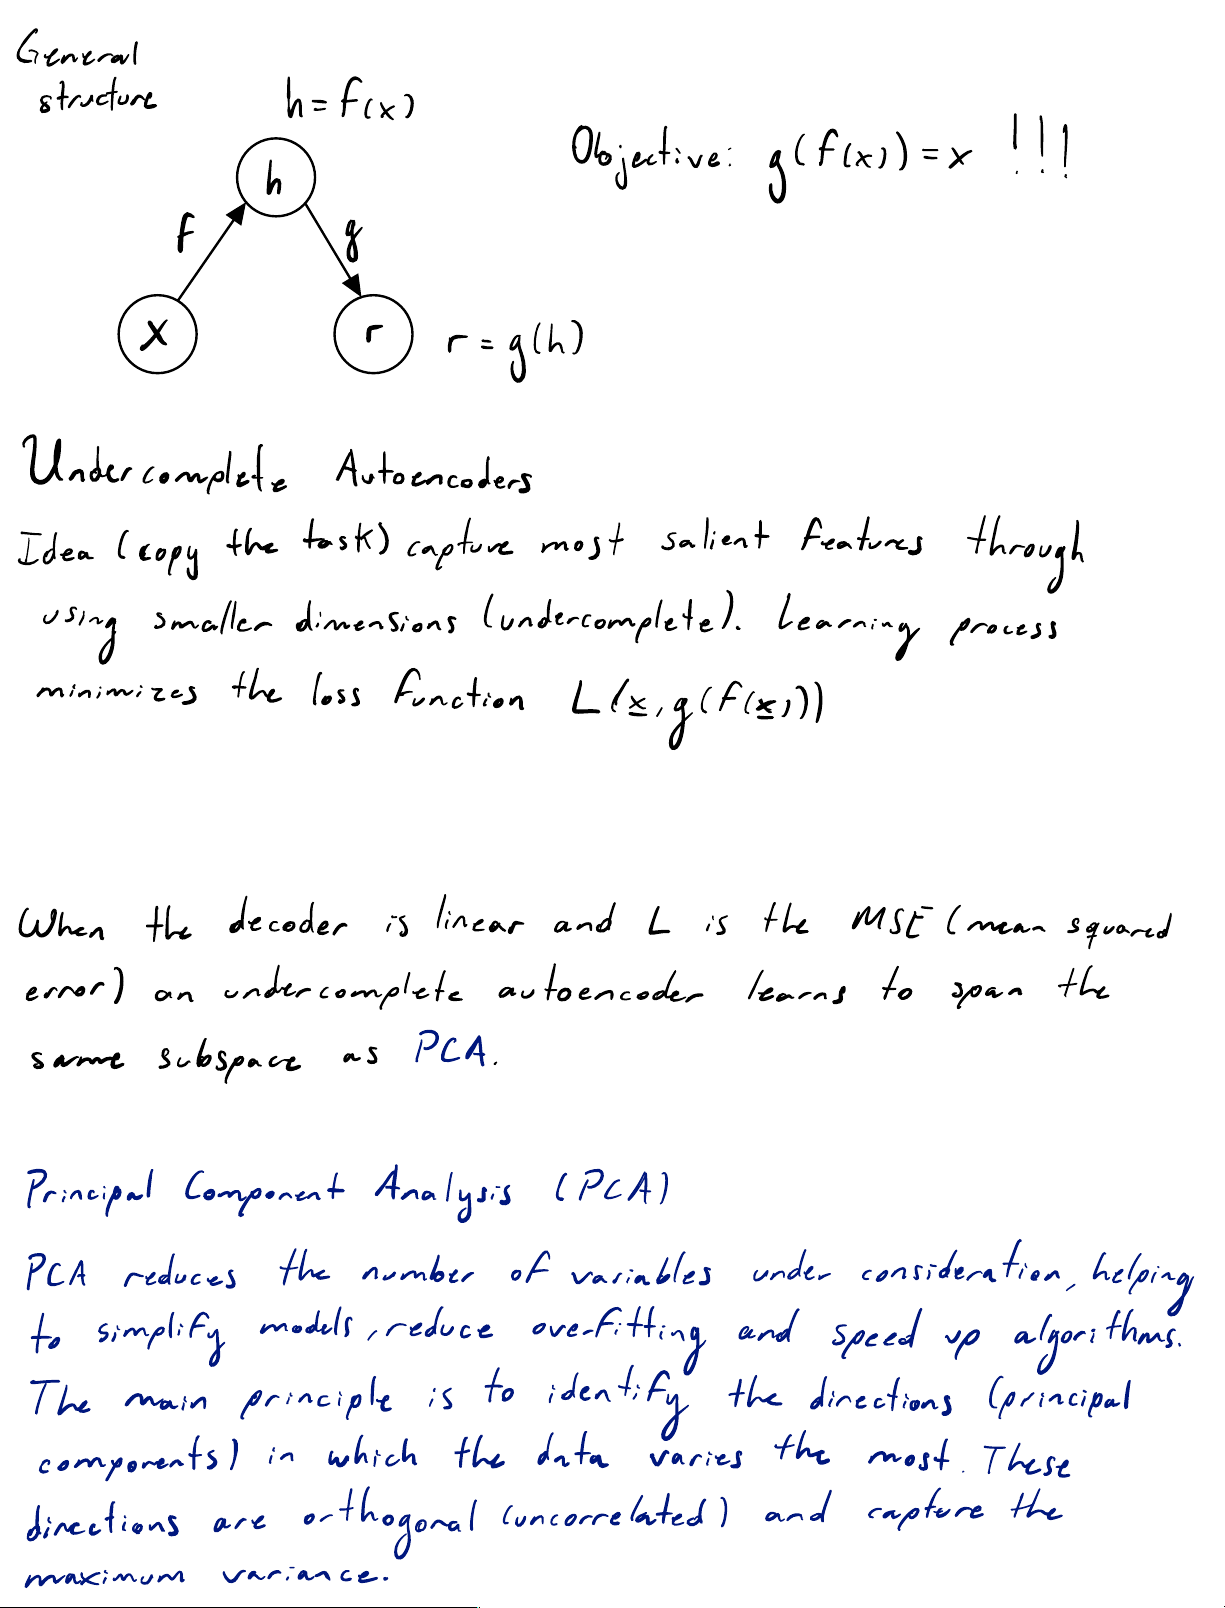 General
structure
h = f(x)
Objective: g(f(x)) = x !!!
h
f
g
x
r
r = g(h)
Undercomplete Autoencoders
Idea (copy the task) capture most salient features through
using smaller dimensions (undercomplete). Learning process
minimizes the loss function L(x, g(f(x)))
When the decoder is linear and L is the MSE (mean squared
error) an undercomplete autoencoder learns to span the
same subspace as PCA.
Principal Component Analysis (PCA)
PCA reduces the number of variables under consideration, helping
to simplify models, reduce overfitting and speed up algorithms.
The main principle is to identify the directions (principal
components) in which the data varies the most. These
directions are orthogonal (uncorrelated) and capture the
maximum variance.